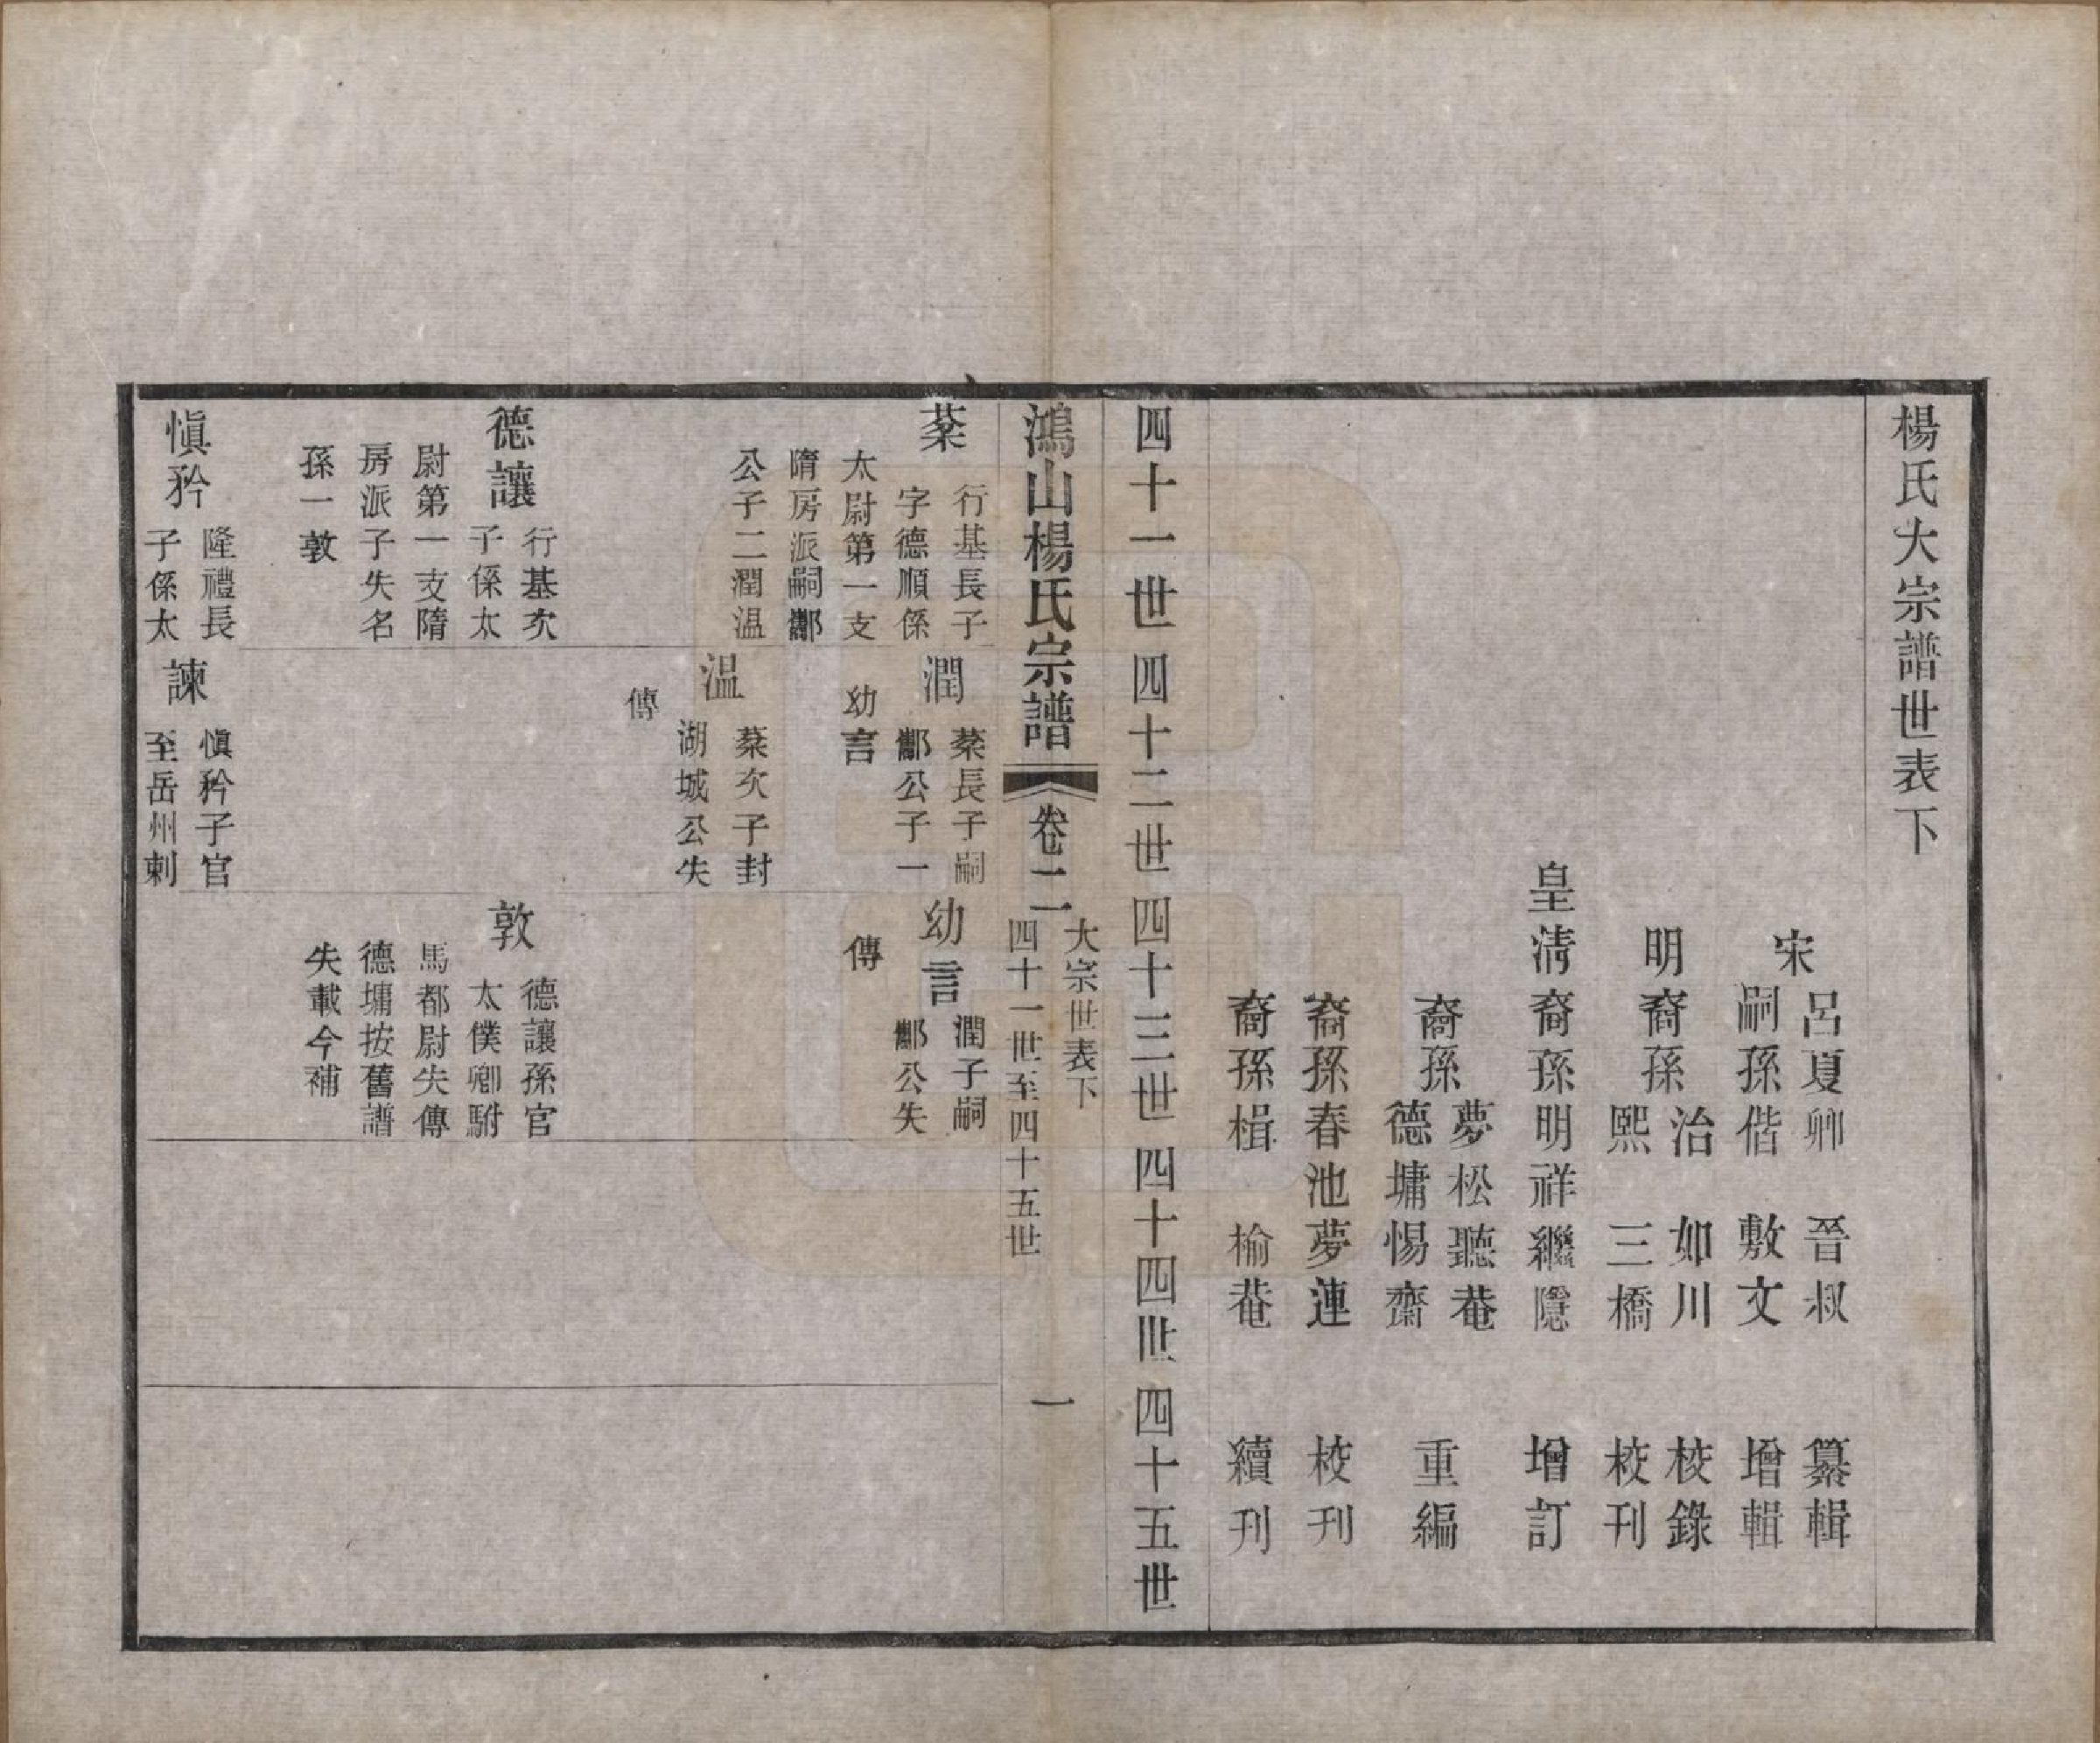 楊氏大宗譜世表下
宋
呂夏卿 晉叔 纂輯
嗣孫偕 敷文 增輯
明
裔孫
治 如川 校錄
熙 三橋 校刊
皇淸裔孫明祥繼隱 增訂
裔孫
夢松聽菴
德墉惕齋
重編
裔孫春池夢蓮 校刊
裔孫楫 榆菴 續刊
四十一世 四十二世 四十三世 四十四世 四十五世
鴻山楊氏宗譜 卷二 大宗世表下
四十一世至四十五世
一
棻
行基長子
字德順係
太尉第一支
隋房派嗣酅
公子二潤温
潤
棻長子嗣
酅公子一
幼言
幼言
潤子嗣
酅公失
傳
温
棻次子封
湖城公失
傳
德讓
行基次
子係太
尉第一支隋
房派子失名
孫一敦
敦
德讓孫官
太僕卿駙
馬都尉失傳
德墉按舊譜
失載今補
愼矜
隆禮長
子係太
諫
愼矜子官
至岳州刺